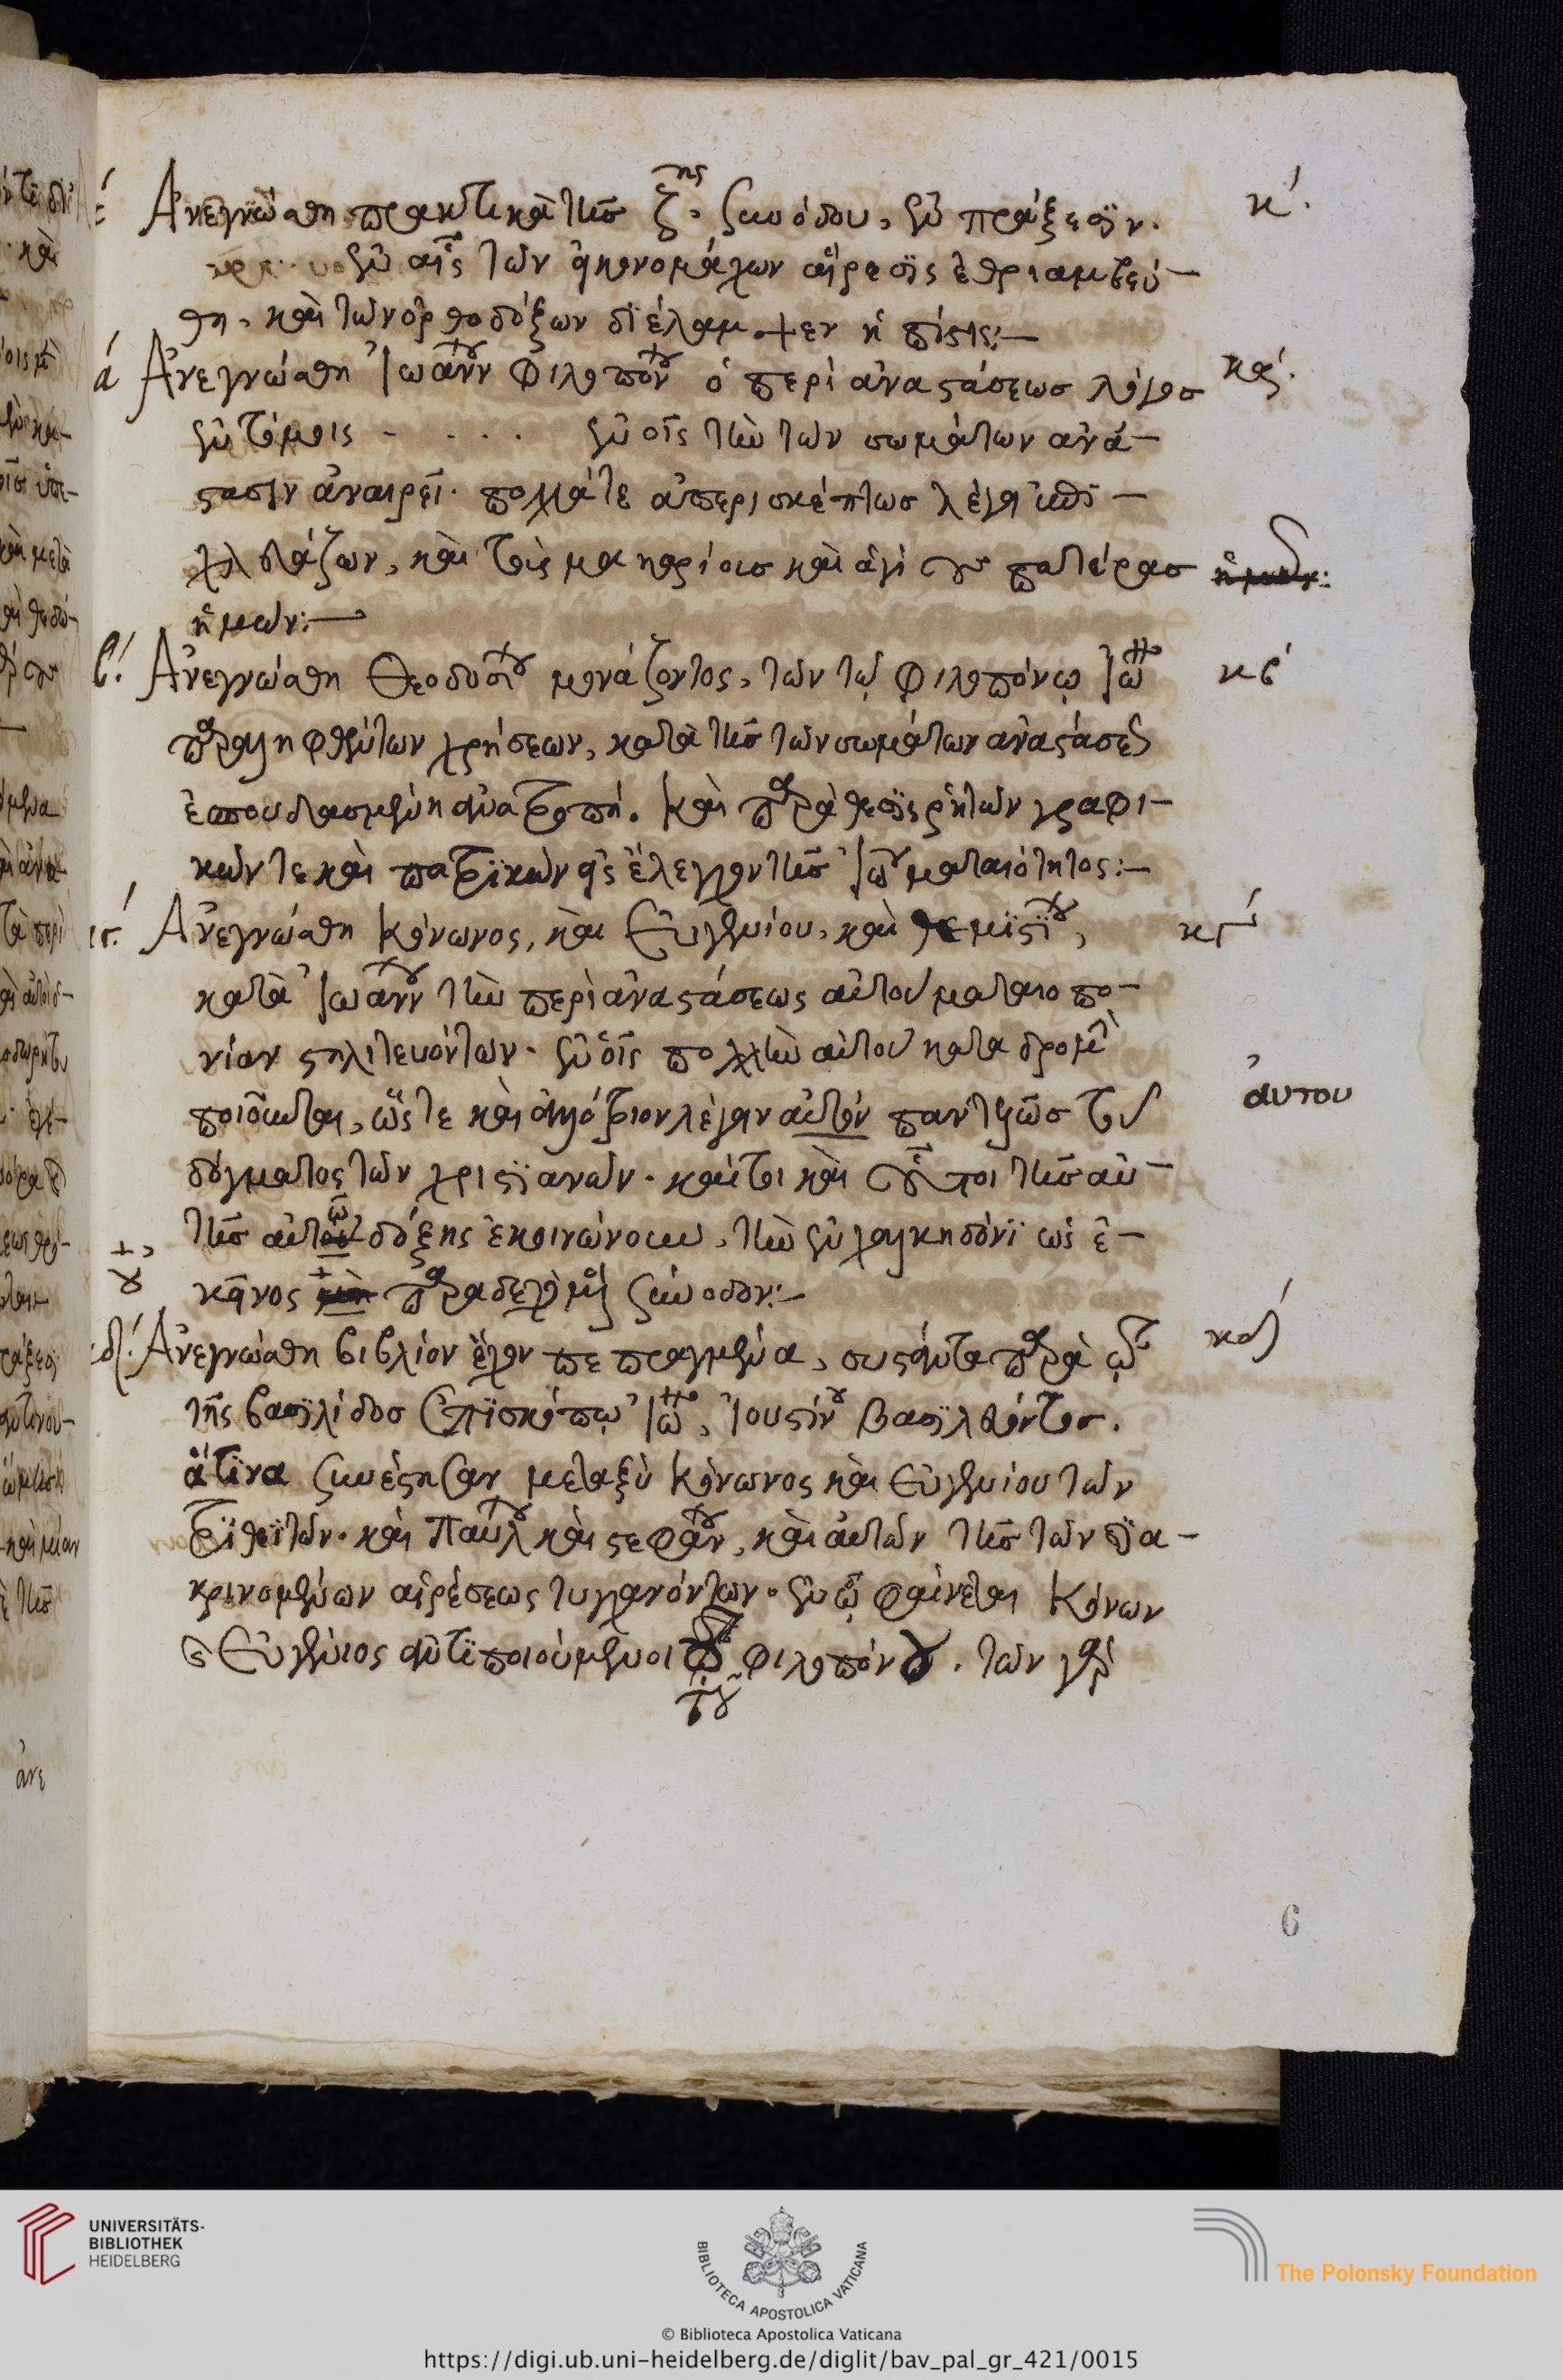 κ΄.
Ἀνεγνώσθη πρακτικὰ τῆς ζ^ης. συνόδου, ἐν πράξεσιν.
ἐν αἷς τῶν εἰκονομάχων αἵρεσις ἐθριαμβεύ-
θη, καὶ τῶν ὀρθοδόξων διέλαμψεν ἡ πίστις:-
ά Ἀνεγνώσθη Ἰωάννου Φιλοπόνου ὁ περὶ ἀναστάσεως λόγος κά.
ἐν τόμοις - . . . . ἐν οἷς τὴν τῶν σωμάτων ἀνά-
στασιν ἀναιρεῖ. πολλά τε ἀπερισκέπτως λέγει ἐπι-
χλευάζων, καὶ τοὺς μακαρίους καὶ ἁγίους πατέρας
ἡμῶν:-
β΄. Ἀνεγνώσθη Θεοδοσίου μονάζοντος, τῶν τῷ Φιλοπόνῳ Ἰω κβ΄
παραληφθέντων χρήσεων, κατὰ τῆς τῶν σωμάτων ἀναστάσεως
ἐσπουδασμένη ἀνατροπή. καὶ παράθεσις ῥητῶν γραφι-
κῶν τε καὶ πατρικῶν εἰς ἔλεγχον τῆς Ἰωάννου ματαιότητος:-
Ἀνεγνώσθη Κόνωνος, καὶ Εὐγενίου, καὶ Θεμιστίου, κγ΄
κατὰ Ἰωάννου τὴν περὶ ἀναστάσεως αὐτοῦ ματαιοπο-
νίαν στηλιτευόντων. ἐν οἷς πολλὴν αὐτοῦ καταδρομὴν
ποιοῦνται, ὥστε καὶ ἀλλότριον λέγειν αὐτὸν παντελῶς τοῦ αυτου
δόγματος τῶν χριστιανῶν. καίτοι καὶ οὗτοι τῆς αὐ-
τῆς αὐτῷ δόξης ἐκοινώνουν, τὴν ἐν χαλκηδόνι ὡς ἐ-
κεῖνος οὐ παραδεχόμενοι σύνοδον:-
δ΄. Ἀνεγνώσθη βιβλίον ἔχον πεπραγμένα, συστάντα παρὰ τῷ κδ΄
τῆς βασιλίδος ἐπισκόπῳ Ἰω, Ἰουστίνου βασιλεύοντος.
ἅτινα συνέστησαν μεταξὺ Κόνωνος καὶ Εὐγενίου τῶν
τριθεϊτῶν. καὶ Παύλου καὶ Στεφάνου, καὶ αὐτῶν τῆς τῶν δια-
κρινομένων αἱρέσεως τυγχανόντων. ἐν ᾧ φαίνεται Κόνων
καὶ Εὐγένιος ἀντιποιούμενοι τοῦ Φιλοπόνου. τῶν γὰρ
τοῦ
ἀνε
6
UNIVERSITÄTS-
BIBLIOTHEK
HEIDELBERG
BIBLIOTECA APOSTOLICA VATICANA
The Polonsky Foundation
© Biblioteca Apostolica Vaticana
https://digi.ub.uni-heidelberg.de/diglit/bav_pal_gr_421/0015